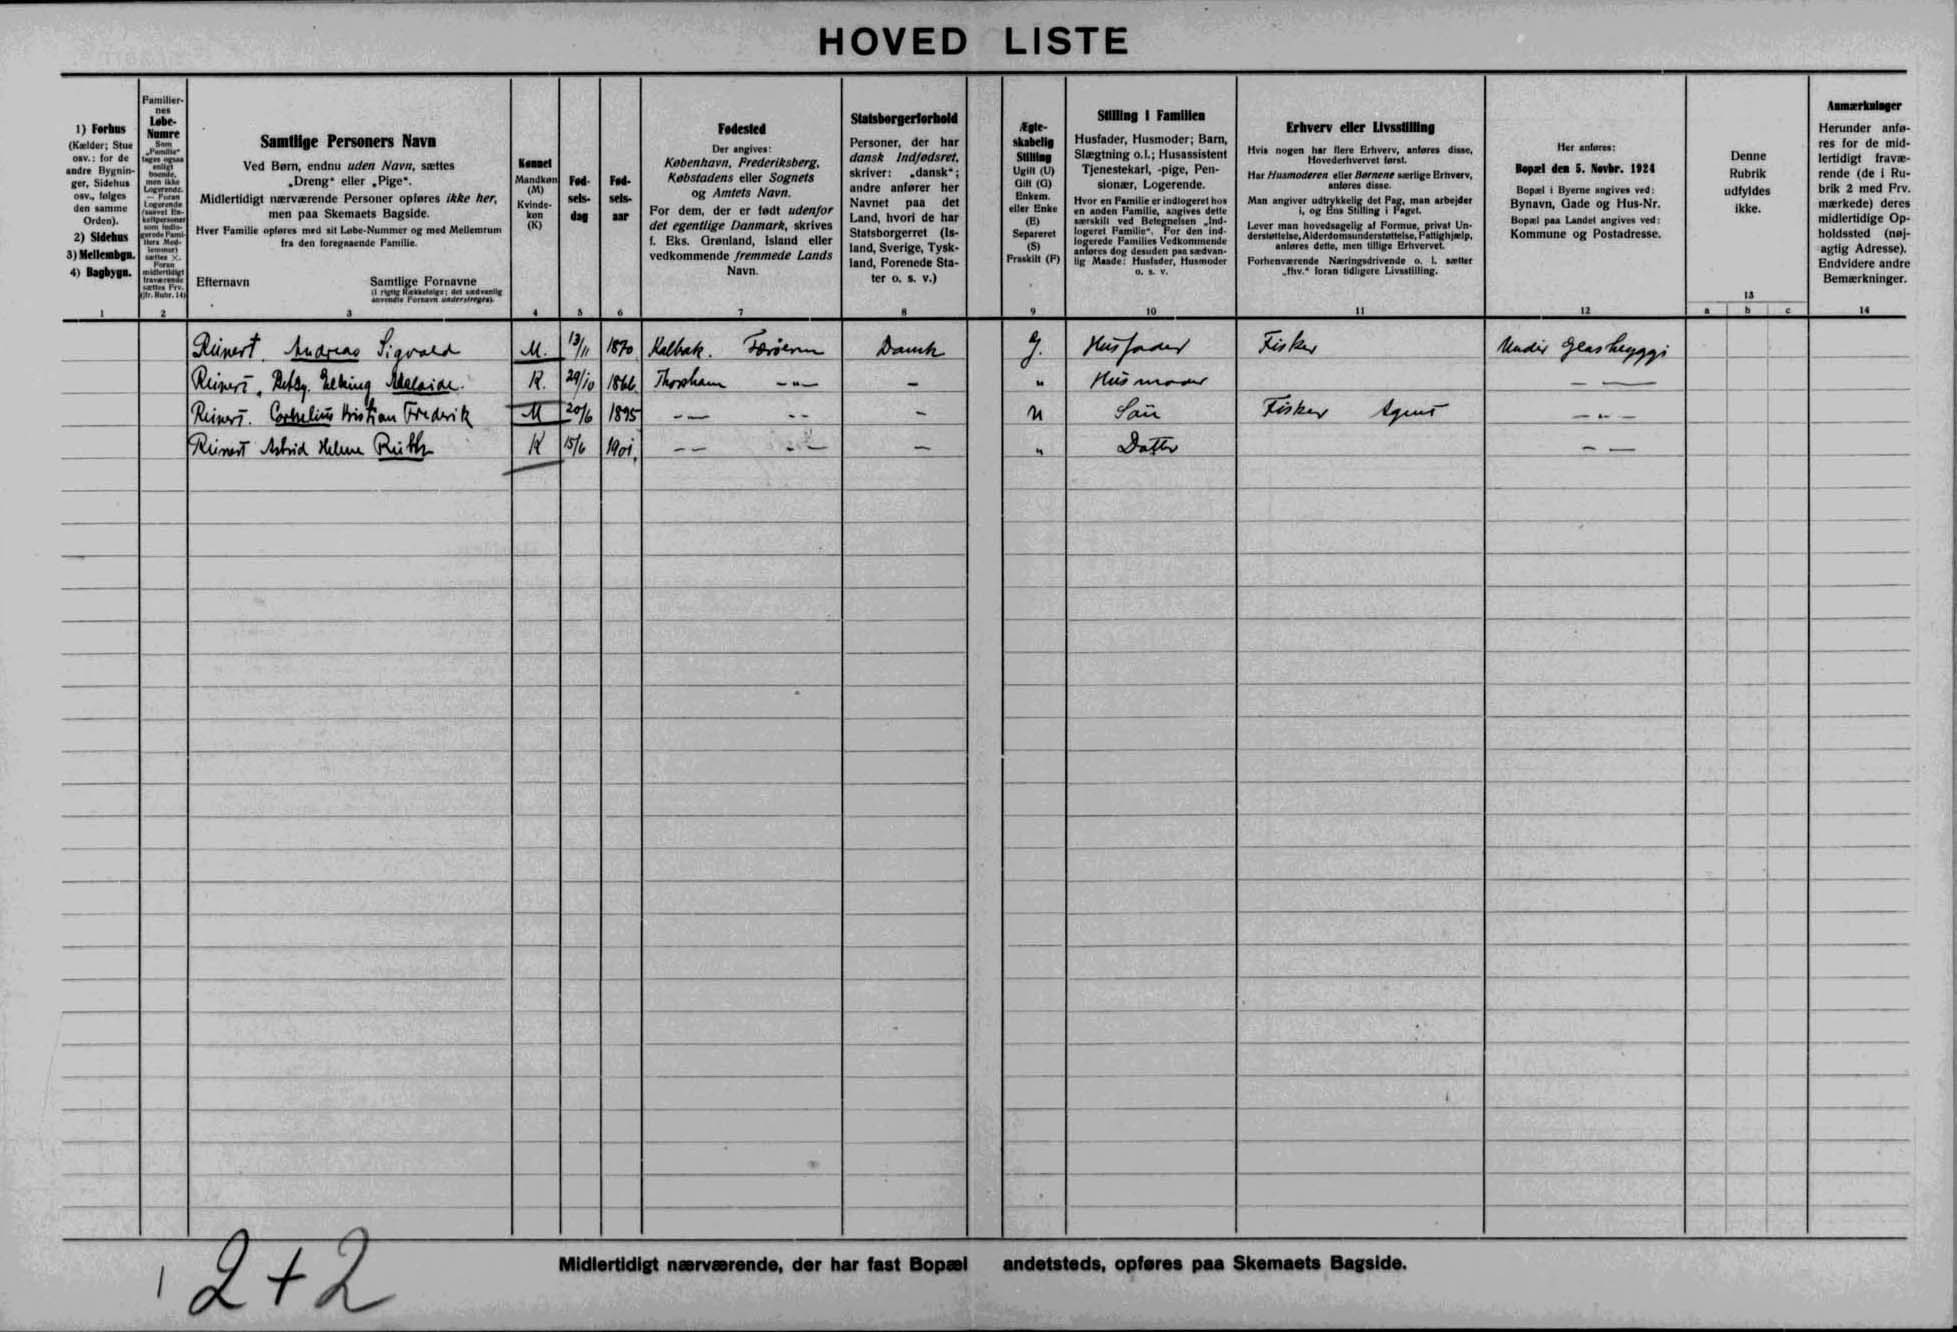 HOVED LISTE
1) Forhus
(Kælder; Stue
osv.: for de
andre Bygnin-
ger, Sidehus
osv., følges
den samme
Orden).
2) Sidehus
3) Mellembgn.
4) Bagbygn.
1
Familier-
nes
Løbe-
Numre
Som
„Familie“
tages ogsaa
enligt
boende,
men ikke
Logerende.
— Foran
Logerende
(saavel En-
keltpersoner
som indlo-
gerede Fami-
liers Med-
lemmer)
sættes ×.
Foran
midlertidigt
fraværende
sættes Frv.
(jfr. Rubr. 14)
2
Samtlige Personers Navn
Ved Børn, endnu uden Navn, sættes
„Dreng“ eller „Pige“.
Midlertidigt nærværende Personer opføres ikke her,
men paa Skemaets Bagside.
Hver Familie opføres med sit Løbe-Nummer og med Mellemrum
fra den foregaaende Familie.
Efternavn
Samtlige Fornavne
(i rigtig Rækkefølge; det sædvanlig
anvendte Fornavn understreges).
3
Kønnet
Mandkøn
(M)
Kvinde-
køn
(K)
4
Fød-
sels-
dag
5
Fød-
sels-
aar
6
Fødested
Der angives:
København, Frederiksberg,
Købstadens eller Sognets
og Amtets Navn.
For dem, der er født udenfor
det egentlige Danmark, skrives
f. Eks. Grønland, Island eller
vedkommende fremmede Lands
Navn.
7
Statsborgerforhold
Personer, der har
dansk Indfødsret,
skriver: „dansk“;
andre anfører her
Navnet paa det
Land, hvori de har
Statsborgerret (Is-
land, Sverige, Tysk-
land, Forenede Sta-
ter o. s. v.)
8
Ægte-
skabelig
Stilling
Ugift (U)
Gift (G)
Enkem.
eller Enke
(E)
Separeret
(S)
Fraskilt (F)
9
Stilling i Familien
Husfader, Husmoder; Barn,
Slægtning o.l.; Husassistent
Tjenestekarl, -pige, Pen-
sionær, Logerende.
Hvor en Familie er indlogeret hos
en anden Familie, angives dette
særskilt ved Betegnelsen „Ind-
logeret Familie“. For den ind-
logerede Families Vedkommende
anføres dog desuden paa sædvan-
lig Maade: Husfader, Husmoder
o. s. v.
10
Erhverv eller Livsstilling
Hvis nogen har flere Erhverv, anføres disse,
Hovederhvervet først.
Har Husmoderen eller Børnene særlige Erhverv,
anføres disse.
Man angiver udtrykkelig det Fag, man arbejder
i, og Ens Stilling i Faget.
Lever man hovedsagelig af Formue, privat Un-
derstøttelse, Alderdomsunderstøttelse, Fattighjælp,
anføres dette, men tillige Erhvervet.
Forhenværende Næringsdrivende o. l. sætter
„fhv.“ foran tidligere Livsstilling.
11
Her anføres:
Bopæl den 5. Novbr. 1924
Bopæl i Byerne angives ved:
Bynavn, Gade og Hus-Nr.
Bopæl paa Landet angives ved:
Kommune og Postadresse.
12
Denne
Rubrik
udfyldes
ikke.
13
a b c
Anmærkninger
Herunder anfø-
res for de mid-
lertidigt fravæ-
rende (de i Ru-
brik 2 med Frv.
mærkede) deres
midlertidige Op-
holdssted (nøj-
agtig Adresse).
Endvidere andre
Bemærkninger.
14
Reinert. Andreas Sigvald M. 13/11 1870 Kalbak. Færøerne Dansk G. Husfader Fisker Under Glashyggi
Reinert, Betsy Adelaide. K. 29/10 1866 Thorshavn -"- - " Husmoder - —
Reinert. Cornelius Kristian Frederik M 20/6 1895 - — - - - U Søn Fisker Agent - " -
Reinert Astrid Helene Ruth K 15/6 1901. - — - — - " Datter - —
Midlertidigt nærværende, der har fast Bopæl andetsteds, opføres paa Skemaets Bagside.
1 2+2